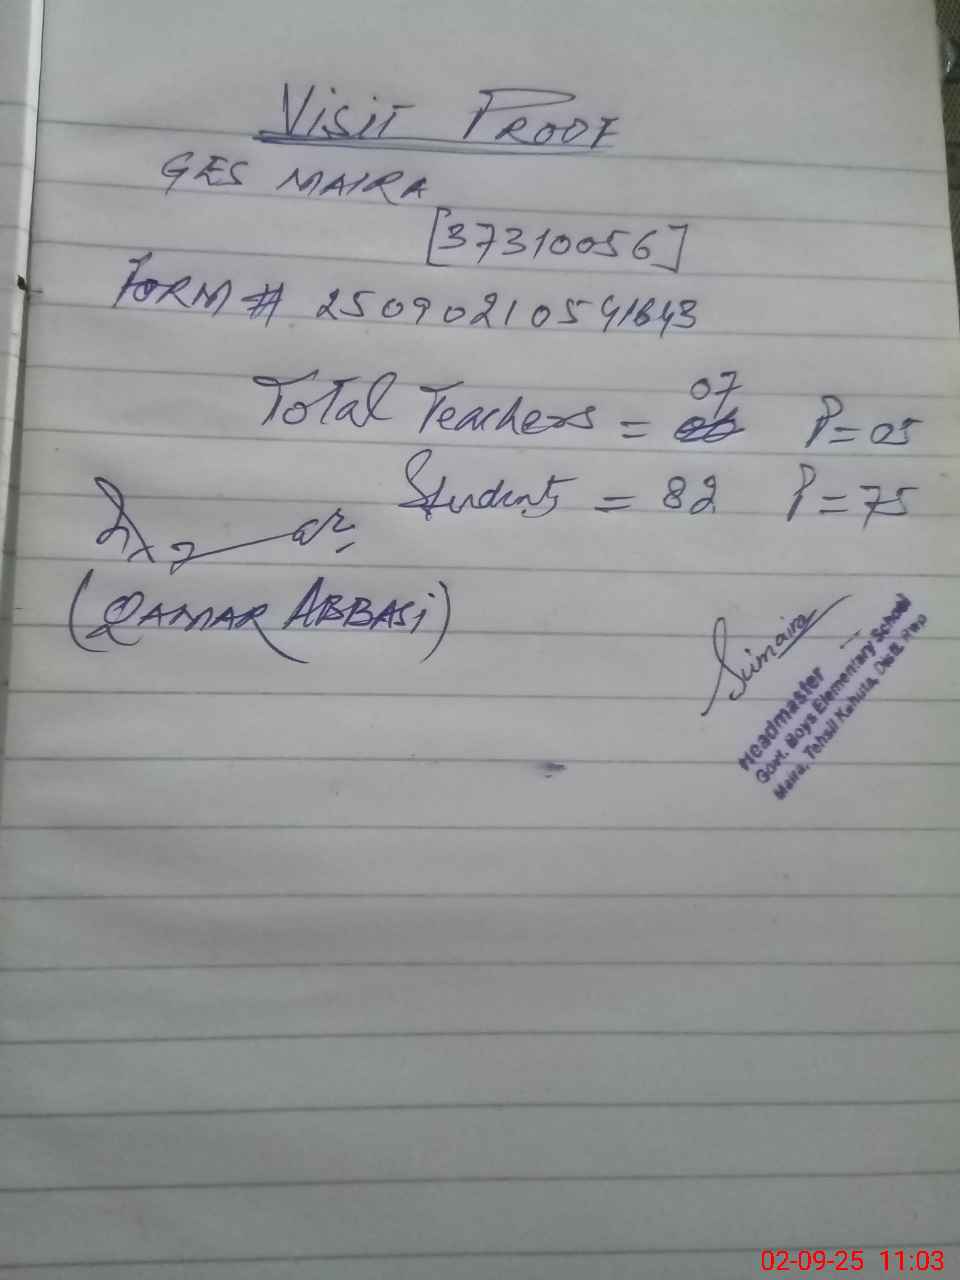 VISIT PROOF
GES MAIRA
[37310056]
FORM # 25090210541643
07
Total Teachers = 06 P=05
Students = 82 P=75
(QAMAR ABBASI)
Sumaira
Headmaster
Govt. Boys Elementary School
Maira, Tehsil Kahuta, Distt. Rwp
02-09-25 11:03